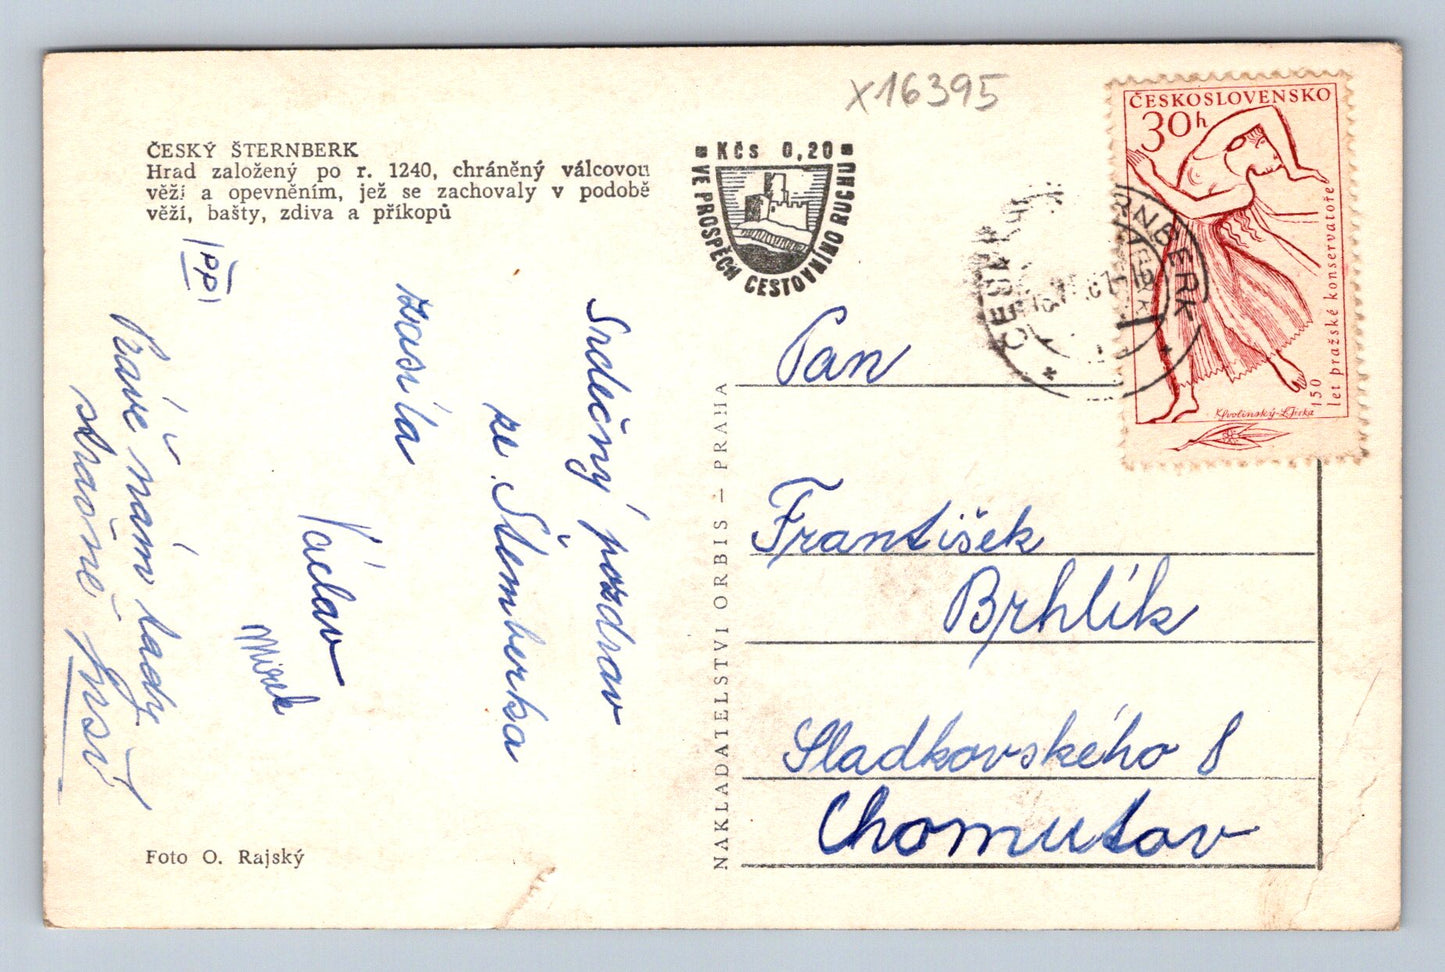 X16395
ČESKÝ ŠTERNBERK
Hrad založený po r. 1240, chráněný válcovou
věží a opevněním, jež se zachovaly v podobě
věží, bašty, zdiva a příkopů
KČS 0,20
VE PROSPĚCH CESTOVNÍHO RUCHU
ČESKOSLOVENSKO
30h
150
let pražské konservatoře
Srdečný pozdrav
ze Šternberka
zasílá
Václav
Mirek
Právě nám tady
strašně prší
NAKLADATELSTVÍ ORBIS – PRAHA
Pan
František
Brhlík
Sladkovského 8
Chomutov
Foto O. Rajský